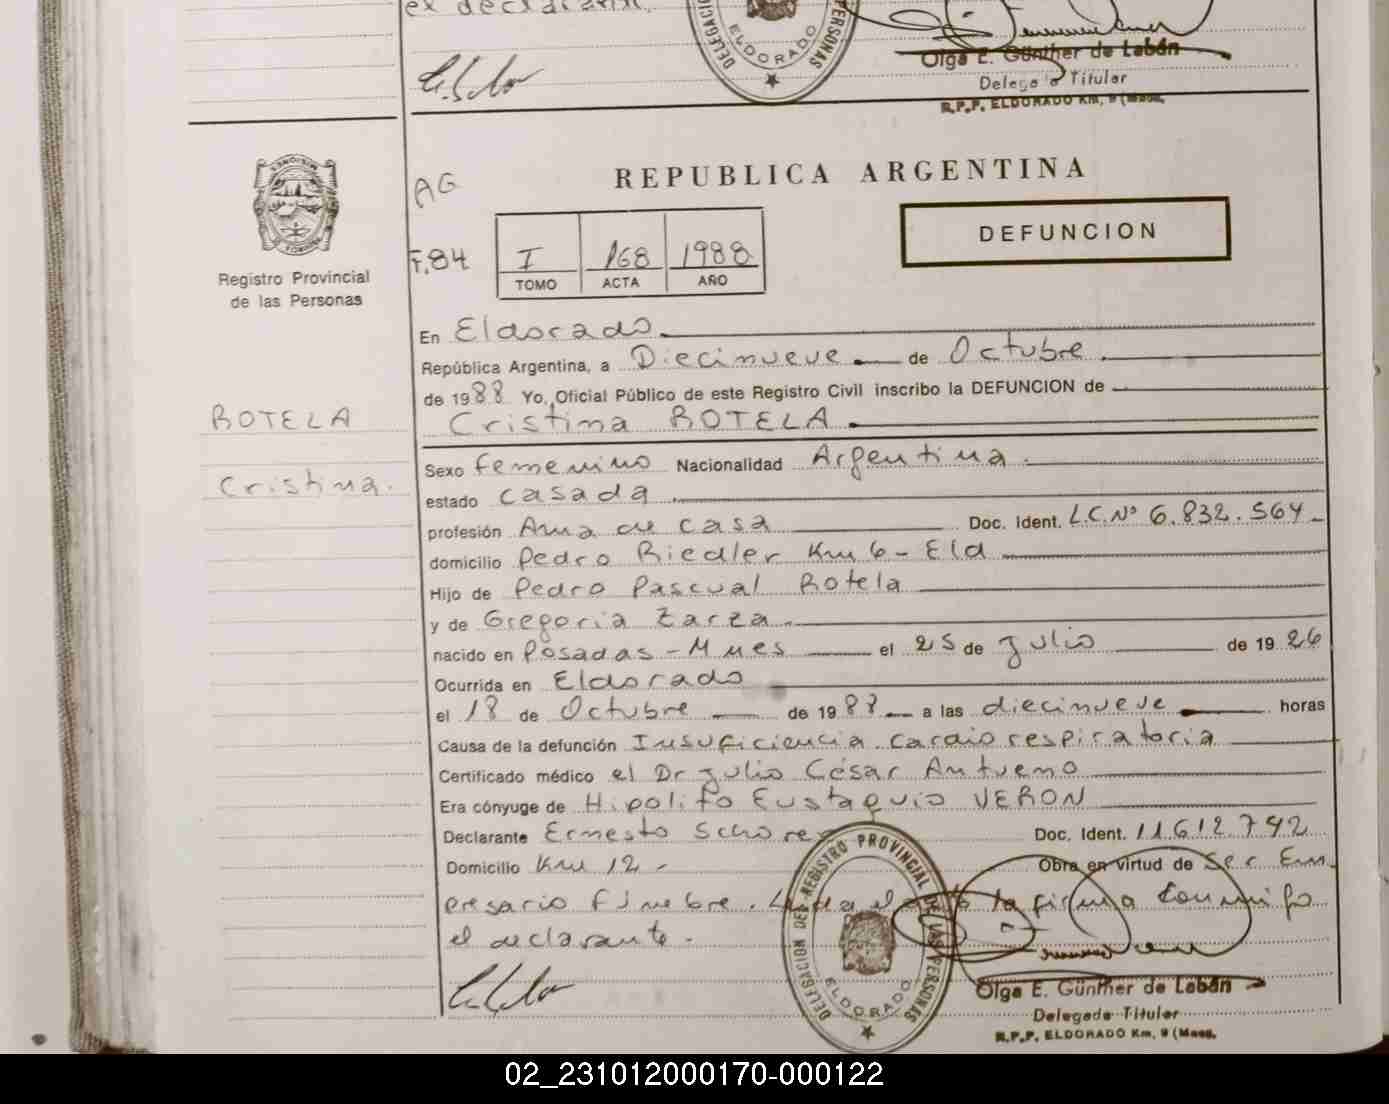 ex declarante.
DELEGACION
PERSONAS
ELDORADO
Olga E. Günther de Labán
Delegada Titular
R.P.P. ELDORADO Km, 9 (Mnes.
MISIONES
Registro Provincial
de las Personas
AG
REPUBLICA ARGENTINA
F.84
I 168 1988
TOMO ACTA AÑO
DEFUNCION
En Eldorado
República Argentina, a Diecinueve de Octubre.
de 1988 Yo, Oficial Público de este Registro Civil inscribo la DEFUNCION de
ROTELA Cristina ROTELA.
Cristina.
Sexo femenino Nacionalidad Argentina.
estado casada
profesión Ama de casa Doc. Ident. L.C.Nº 6.832.564
domicilio Pedro Riedler Km 6 - Eld
Hijo de Pedro Pascual Rotela
y de Gregoria Zarza
nacido en Posadas - Mnes el 25 de Julio de 1926
Ocurrida en Eldorado
el 18 de Octubre de 1988 a las diecinueve horas
Causa de la defunción Insuficiencia cardiorespiratoria
Certificado médico el Dr Julio César Antueno
Era cónyuge de Hipolito Eustaquio VERON
Declarante Ernesto Doc. Ident. 11.612.742
Domicilio Km 12 - Obra en virtud de Ser Em-
presario Fúnebre. Leída el acta la firma conmigo
el declarante.
DELEGACION DEL REGISTRO PROVINCIAL DE LAS PERSONAS
ELDORADO
Olga E. Günther de Labán
Delegada Titular
R.P.P. ELDORADO Km, 9 (Mnes.
02_231012000170-000122